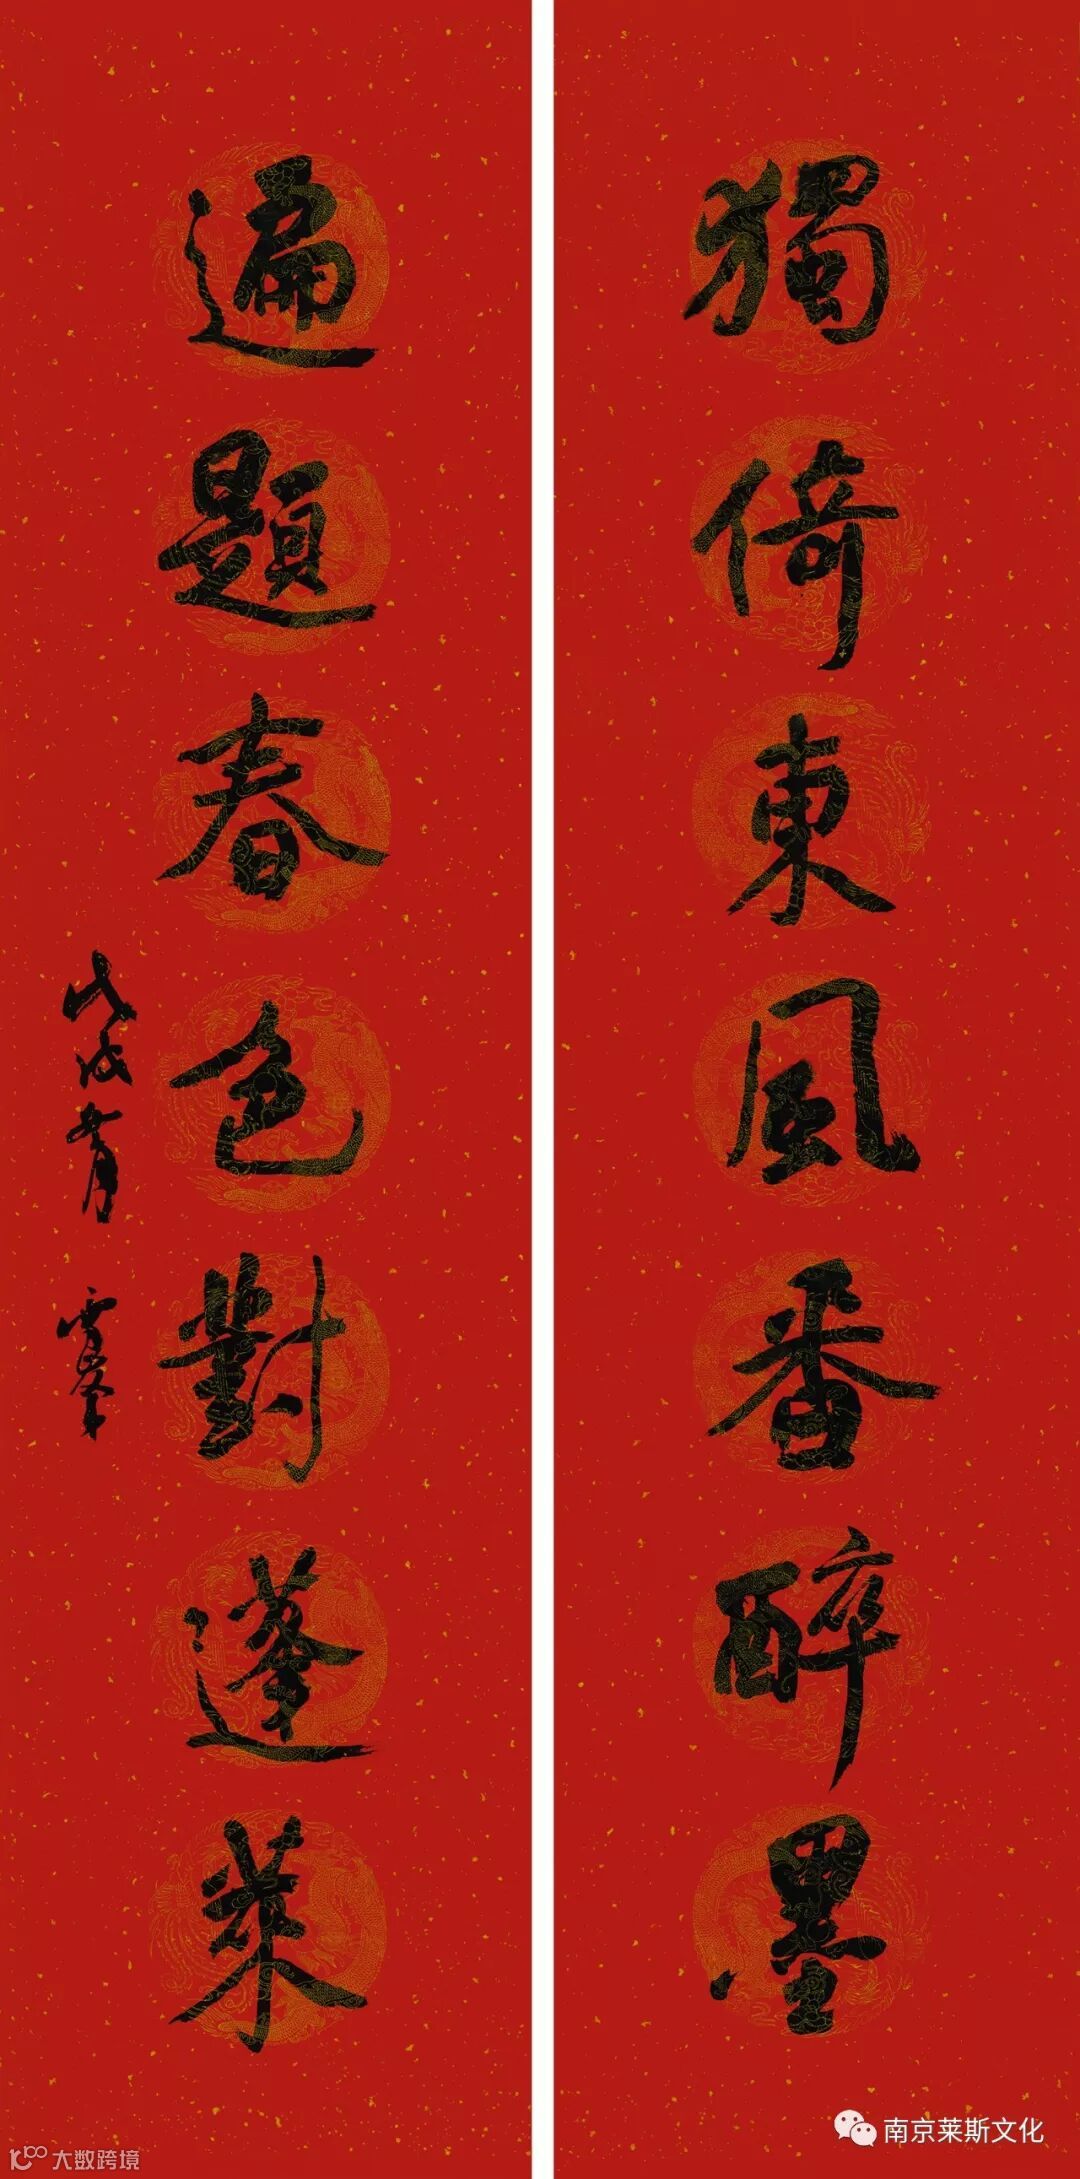 獨倚東風番醉墨
遍題春色對蓬萊
戊戌
南京莱斯文化
大数跨境